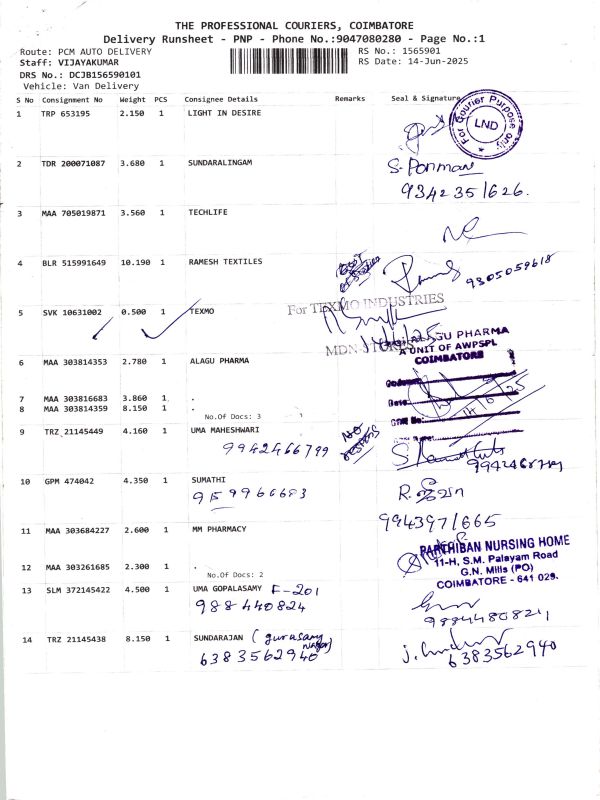 THE PROFESSIONAL COURIERS, COIMBATORE
Delivery Runsheet - PNP - Phone No.:9047080280 - Page No.:1
Route: PCM AUTO DELIVERY
RS No.: 1565901
Staff: VIJAYAKUMAR
RS Date: 14-Jun-2025
DRS No.: DCJB156590101
Vehicle: Van Delivery
S No Consignment No Weight PCS Consignee Details Remarks Seal & Signature
1 TRP 653195 2.150 1 LIGHT IN DESIRE
For Courier Purpose only
LND
2 TDR 200071087 3.680 1 SUNDARALINGAM
S. Ponmani
9342351626.
3 MAA 705019871 3.560 1 TECHLIFE
4 BLR 515991649 10.190 1 RAMESH TEXTILES
9305059618
5 SVK 10631002 0.500 1 TEXMO
For TEXMO INDUSTRIES
MDN STORES
ALAGU PHARMA
A UNIT OF AWPSPL
COIMBATORE
6 MAA 303814353 2.780 1 ALAGU PHARMA
7 MAA 303816683 3.860 1 .
Date
8 MAA 303814359 8.150 1 .
No.Of Docs: 3
9 TRZ 21145449 4.160 1 UMA MAHESHWARI
9942466799
10 GPM 474042 4.350 1 SUMATHI
R.
9943971665
11 MAA 303684227 2.600 1 MM PHARMACY
PARTHIBAN NURSING HOME
11-H, S.M. Palayam Road
G.N. Mills (PO)
COIMBATORE - 641 029.
12 MAA 303261685 2.300 1 .
No.Of Docs: 2
13 SLM 372145422 4.500 1 UMA GOPALASAMY F-201
988440824
98844808211
14 TRZ 21145438 8.150 1 SUNDARAJAN (gurusamy nagar)
6383562940
6383562940